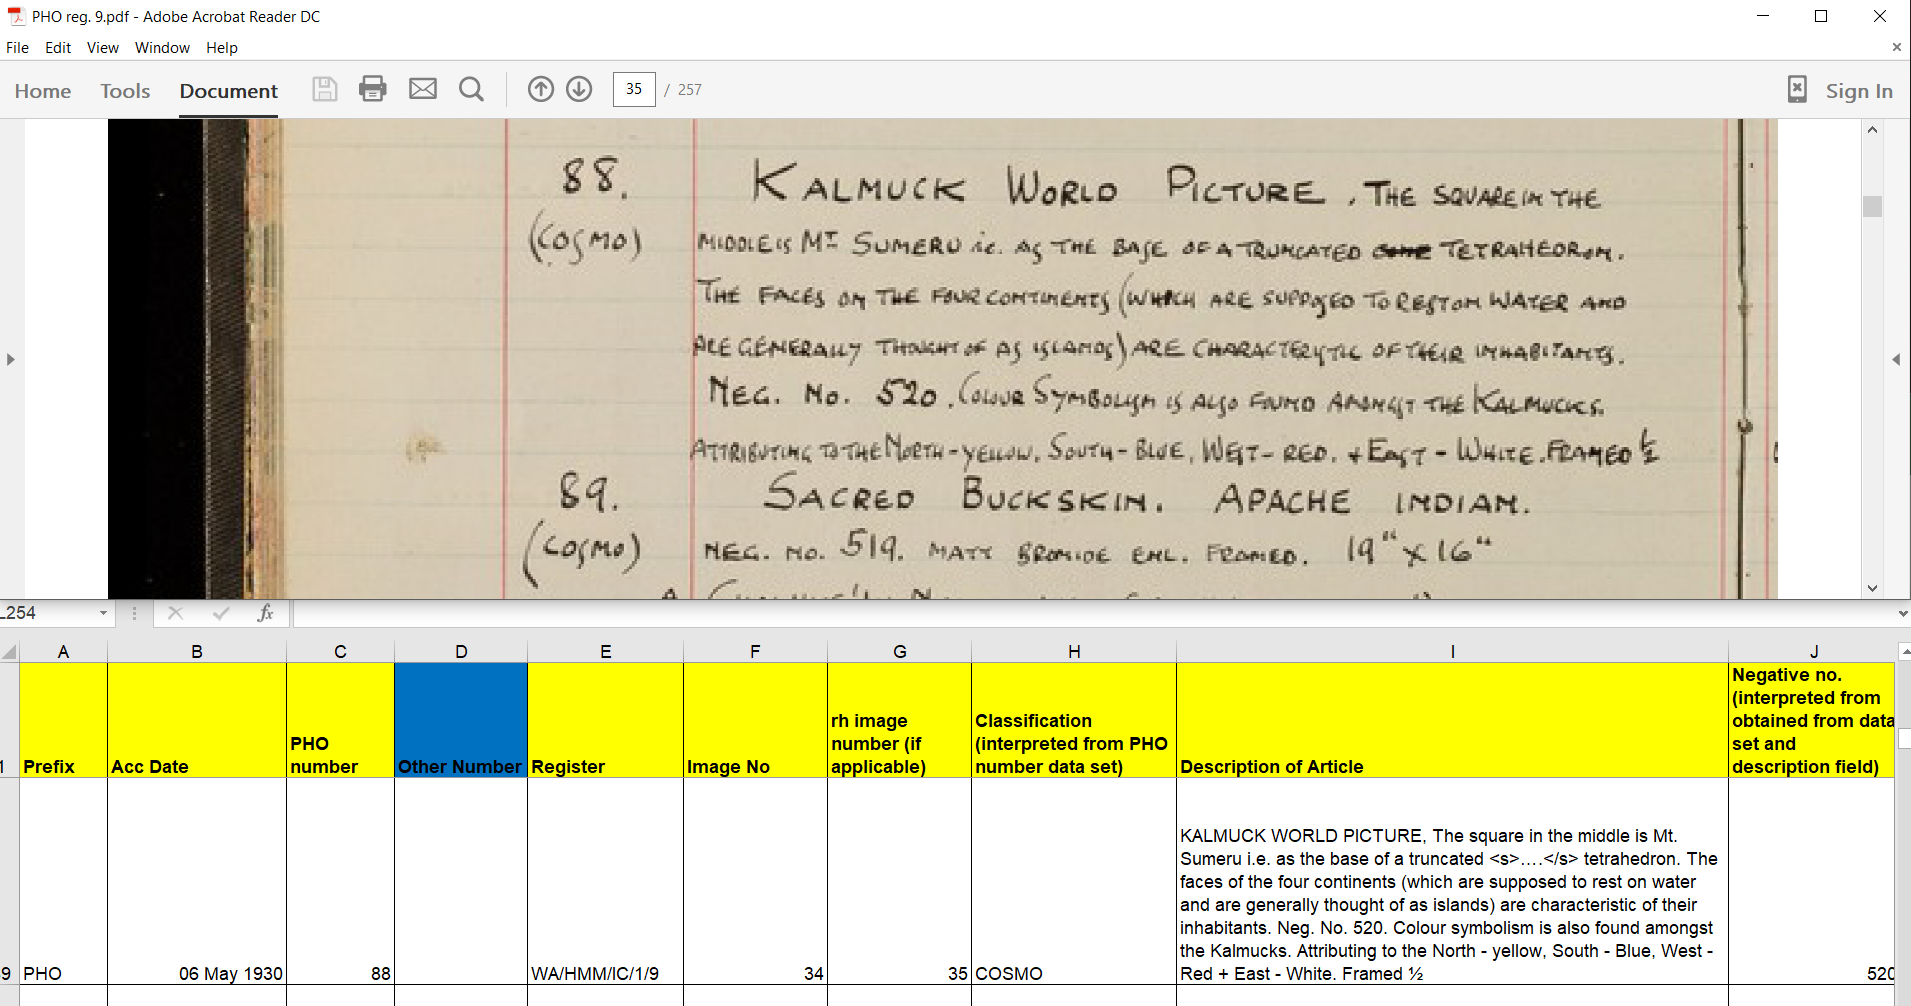 PHO reg. 9.pdf - Adobe Acrobat Reader DC
File Edit View Window Help
Home Tools Document 35 / 257 Sign In
88. KALMUCK WORLD PICTURE, THE SQUARE IN THE
(COSMO) MIDDLE IS MT SUMERU i.e. AS THE BASE OF A TRUNCATED TETRAHEDRON.
THE FACES ON THE FOUR CONTINENTS (WHICH ARE SUPPOSED TO REST ON WATER AND
ARE GENERALLY THOUGHT OF AS ISLANDS) ARE CHARACTERISTIC OF THEIR INHABITANTS.
NEG. No. 520. COLOUR SYMBOLISM IS ALSO FOUND AMONGST THE KALMUCKS.
ATTRIBUTING TO THE NORTH - YELLOW, SOUTH - BLUE, WEST - RED, + EAST - WHITE. FRAMED ½
89. SACRED BUCKSKIN. APACHE INDIAN.
(COSMO) NEG. NO. 519. MATT BROMIDE ENL. FRAMED. 19" X 16"
L254 fx
A B C D E F G H I J
1 Prefix Acc Date PHO number Other Number Register Image No rh image number (if applicable) Classification (interpreted from PHO number data set) Description of Article Negative no. (interpreted from obtained from data set and description field)
KALMUCK WORLD PICTURE, The square in the middle is Mt.
Sumeru i.e. as the base of a truncated <s>....</s> tetrahedron. The
faces of the four continents (which are supposed to rest on water
and are generally thought of as islands) are characteristic of their
inhabitants. Neg. No. 520. Colour symbolism is also found amongst
the Kalmucks. Attributing to the North - yellow, South - Blue, West -
9 PHO 06 May 1930 88 WA/HMM/IC/1/9 34 35 COSMO Red + East - White. Framed ½ 520